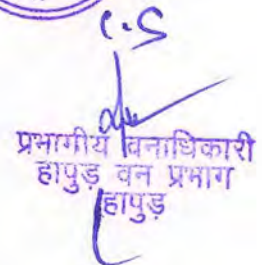 C.S
प्रभागीय वनाधिकारी
हापुड़ वन प्रभाग
हापुड़